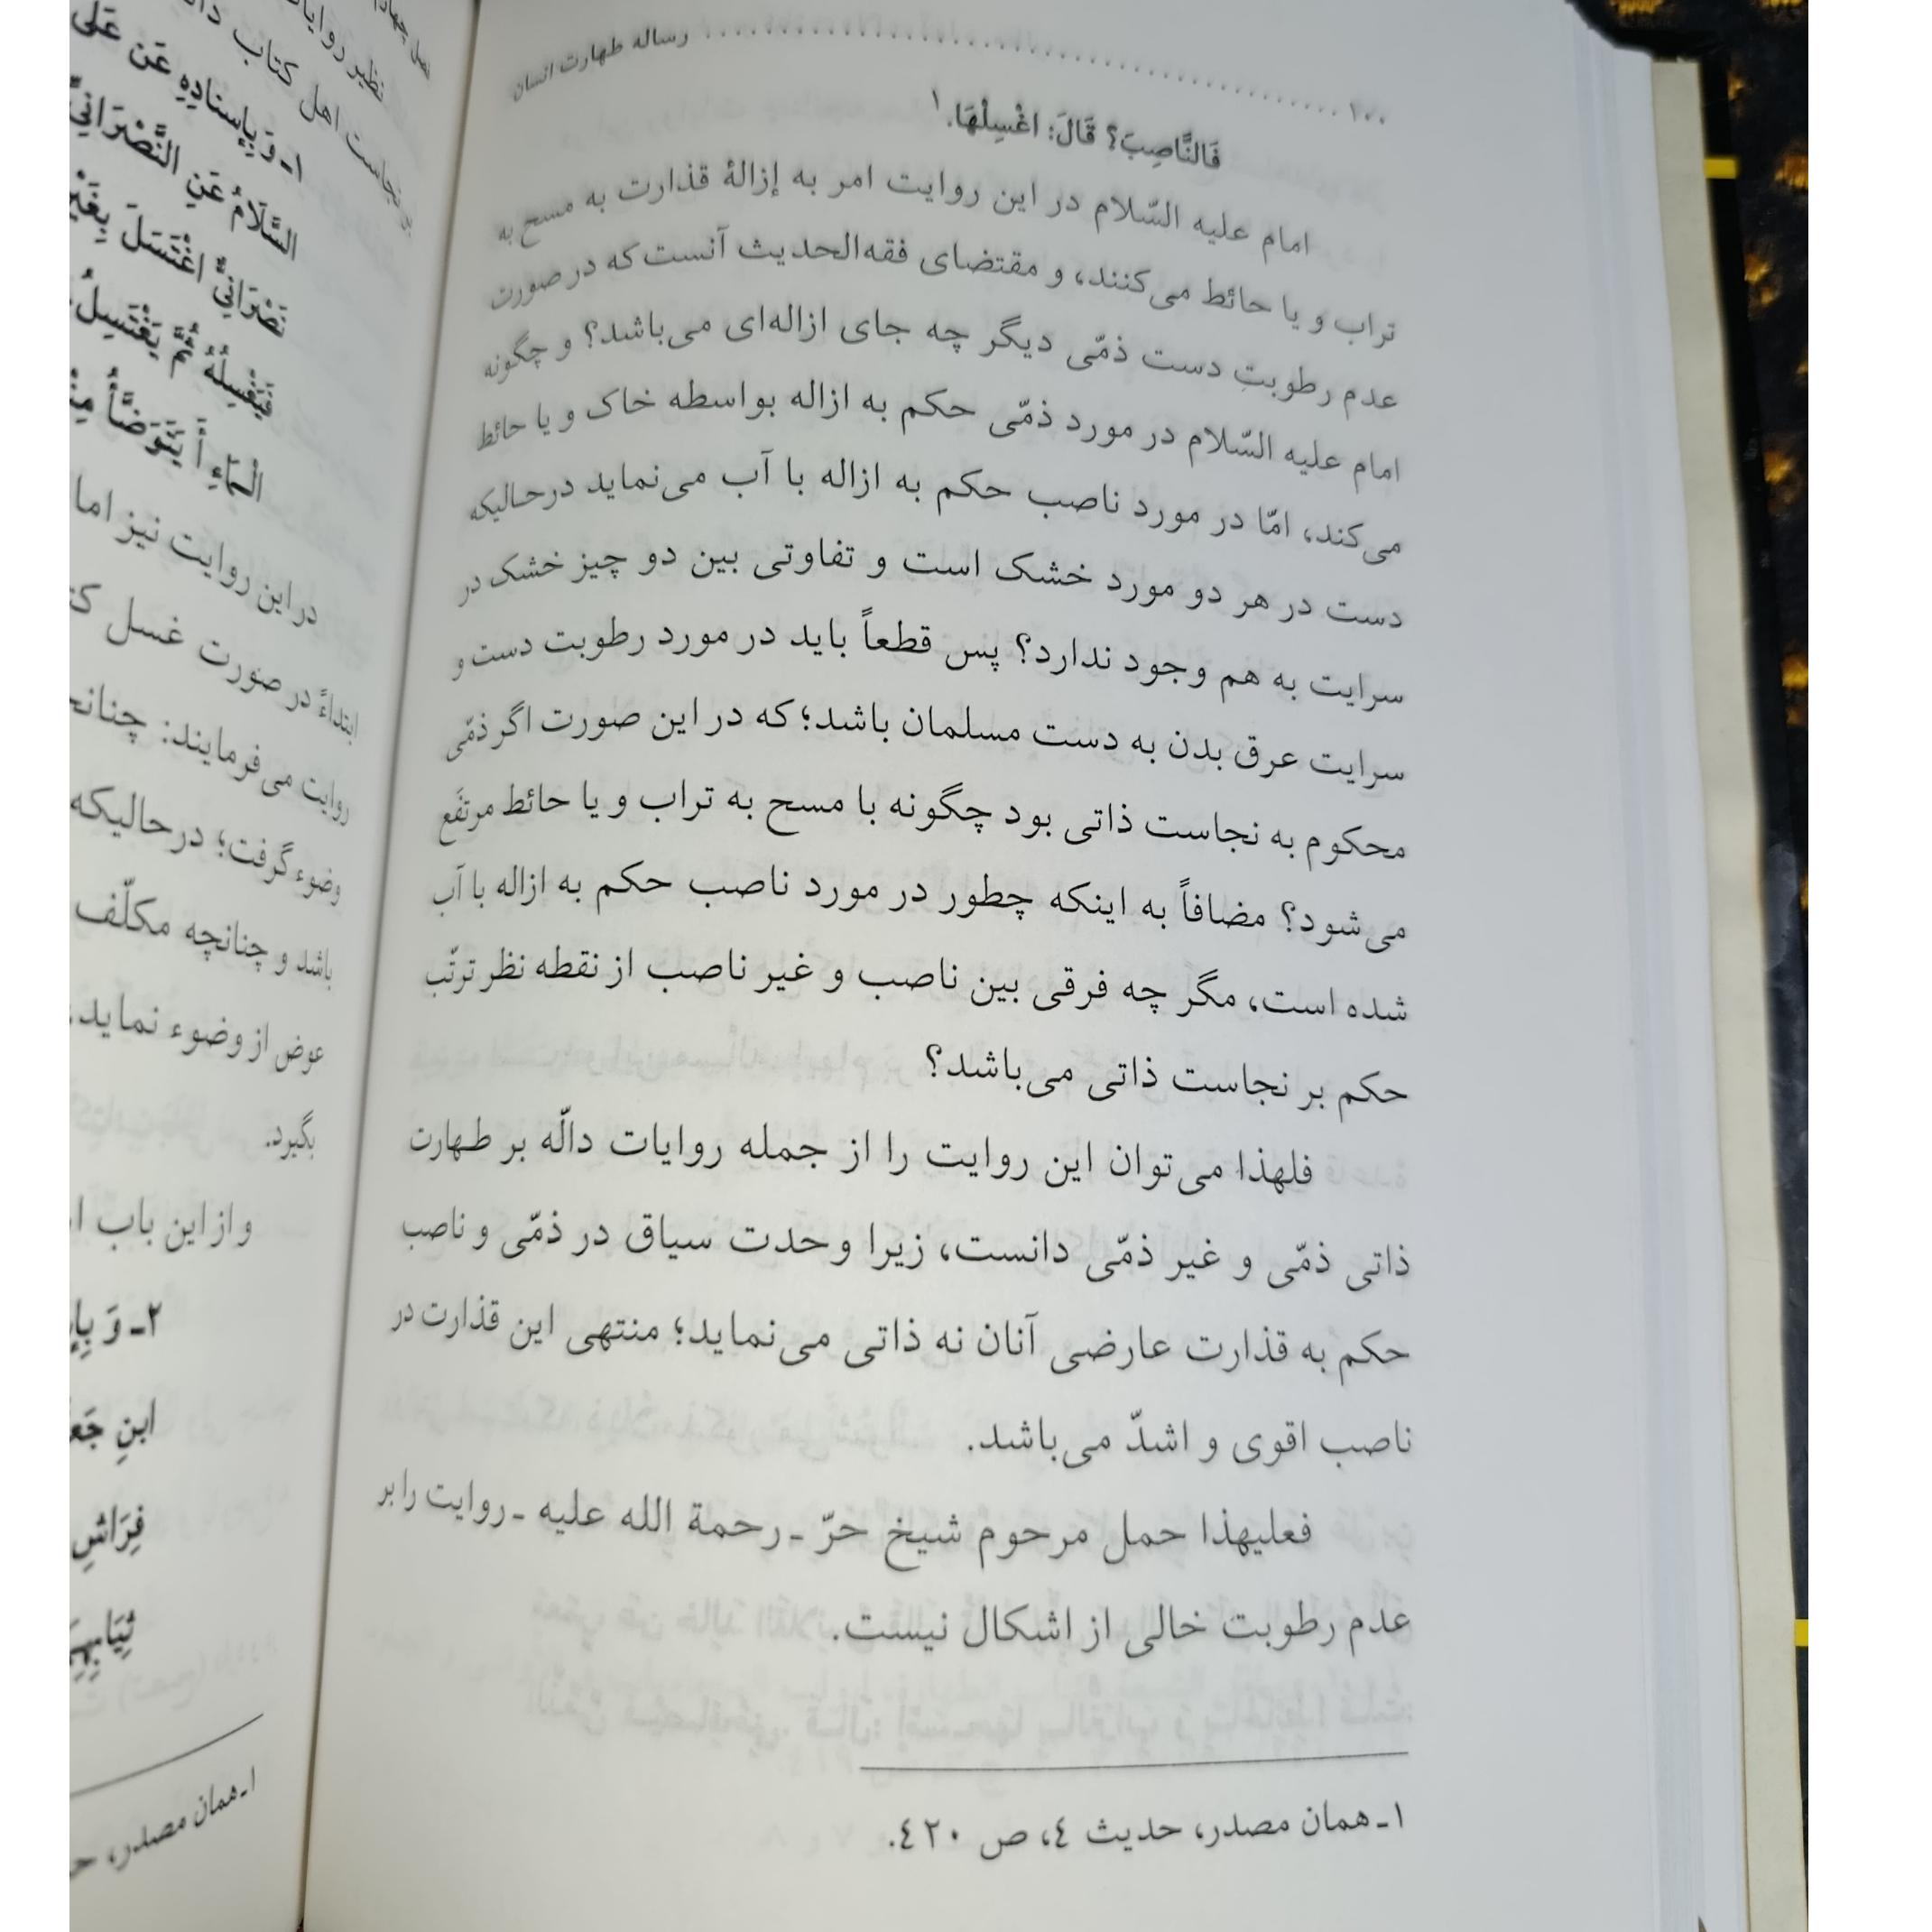 ١٠٠ ........ رساله طهارت انسان
فَالنَّاصِبَ؟ قَالَ: اغْسِلْهَا.١
امام علیه السّلام در این روایت امر به إزالۀ قذارت به مسح به
تراب و یا حائط می‌کنند، و مقتضای فقه‌الحدیث آنست که در صورت
عدم رطوبتِ دست ذمّی دیگر چه جای ازاله‌ای می‌باشد؟ و چگونه
امام علیه السّلام در مورد ذمّی حکم به ازاله بواسطه خاک و یا حائط
می‌کند، امّا در مورد ناصب حکم به ازاله با آب می‌نماید درحالیکه
دست در هر دو مورد خشک است و تفاوتی بین دو چیز خشک در
سرایت به هم وجود ندارد؟ پس قطعاً باید در مورد رطوبت دست و
سرایت عرق بدن به دست مسلمان باشد؛ که در این صورت اگر ذمّی
محکوم به نجاست ذاتی بود چگونه با مسح به تراب و یا حائط مرتفَع
می‌شود؟ مضافاً به اینکه چطور در مورد ناصب حکم به ازاله با آب
شده است، مگر چه فرقی بین ناصب و غیر ناصب از نقطه نظر ترتّب
حکم بر نجاست ذاتی می‌باشد؟
فلهذا می‌توان این روایت را از جمله روایات دالّه بر طهارت
ذاتی ذمّی و غیر ذمّی دانست، زیرا وحدت سیاق در ذمّی و ناصب
حکم به قذارت عارضی آنان نه ذاتی می‌نماید؛ منتهی این قذارت در
ناصب اقوی و اشدّ می‌باشد.
فعلیهذا حمل مرحوم شیخ حرّ ـ رحمة الله علیه ـ روایت را بر
عدم رطوبت خالی از اشکال نیست.
١ـ همان مصدر، حدیث ٤، ص ٤٢٠.
نظیر
نجاست اهل کتاب
١ـ وَ بِإِسنادِهِ عَن عَلی
السَّلَامُ عَنِ النَّصْرَانِيِّ
نَصْرَانِيٌّ اغْتَسَلَ بِغَيْرِ
فَيَغْسِلُهُ ثُمَّ يَغْتَسِلُ
الْمَاءِ أَ يَتَوَضَّأُ مِنْ
در این روایت نیز اما
ابتداءً در صورت غسل
روایت می‌فرمایند:
وضوء گرفت؛ درحالیکه
باشد و چنانچه مکلّف
عوض از وضوء نماید
بگیرد.
و از این باب
٢ـ وَ
ابنِ
فِرَاشِ
١ـ همان مصدر،